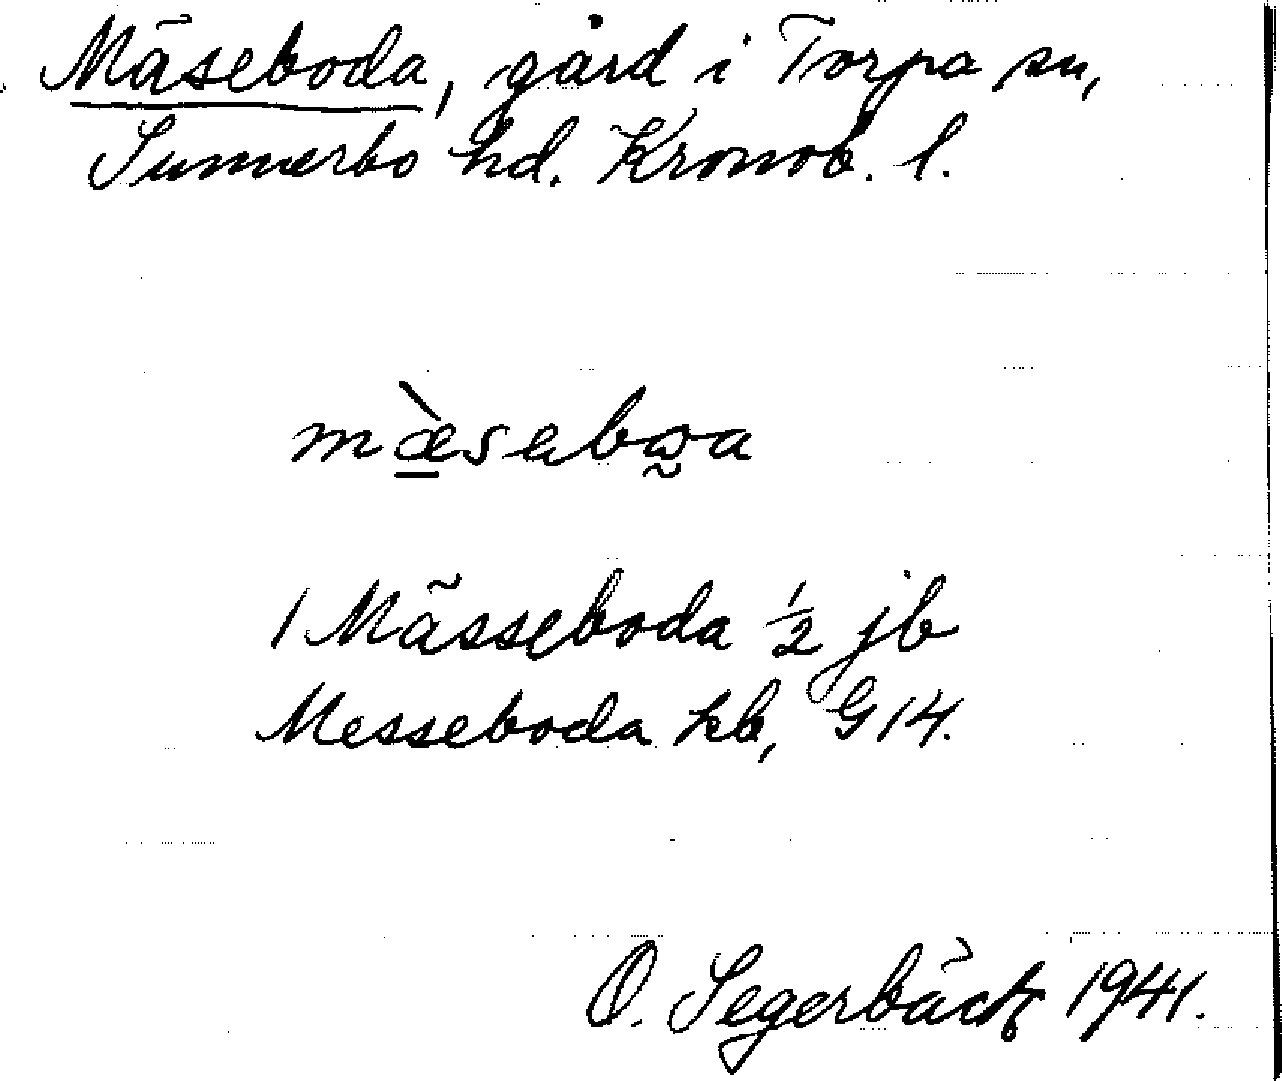 Mäseboda, gård i Torpa sn,
Sunnerbo hd. Kronob. l.
1 Mässeboda ½ jb
Messeboda kb, G14.
O. Segerbäck 1941.